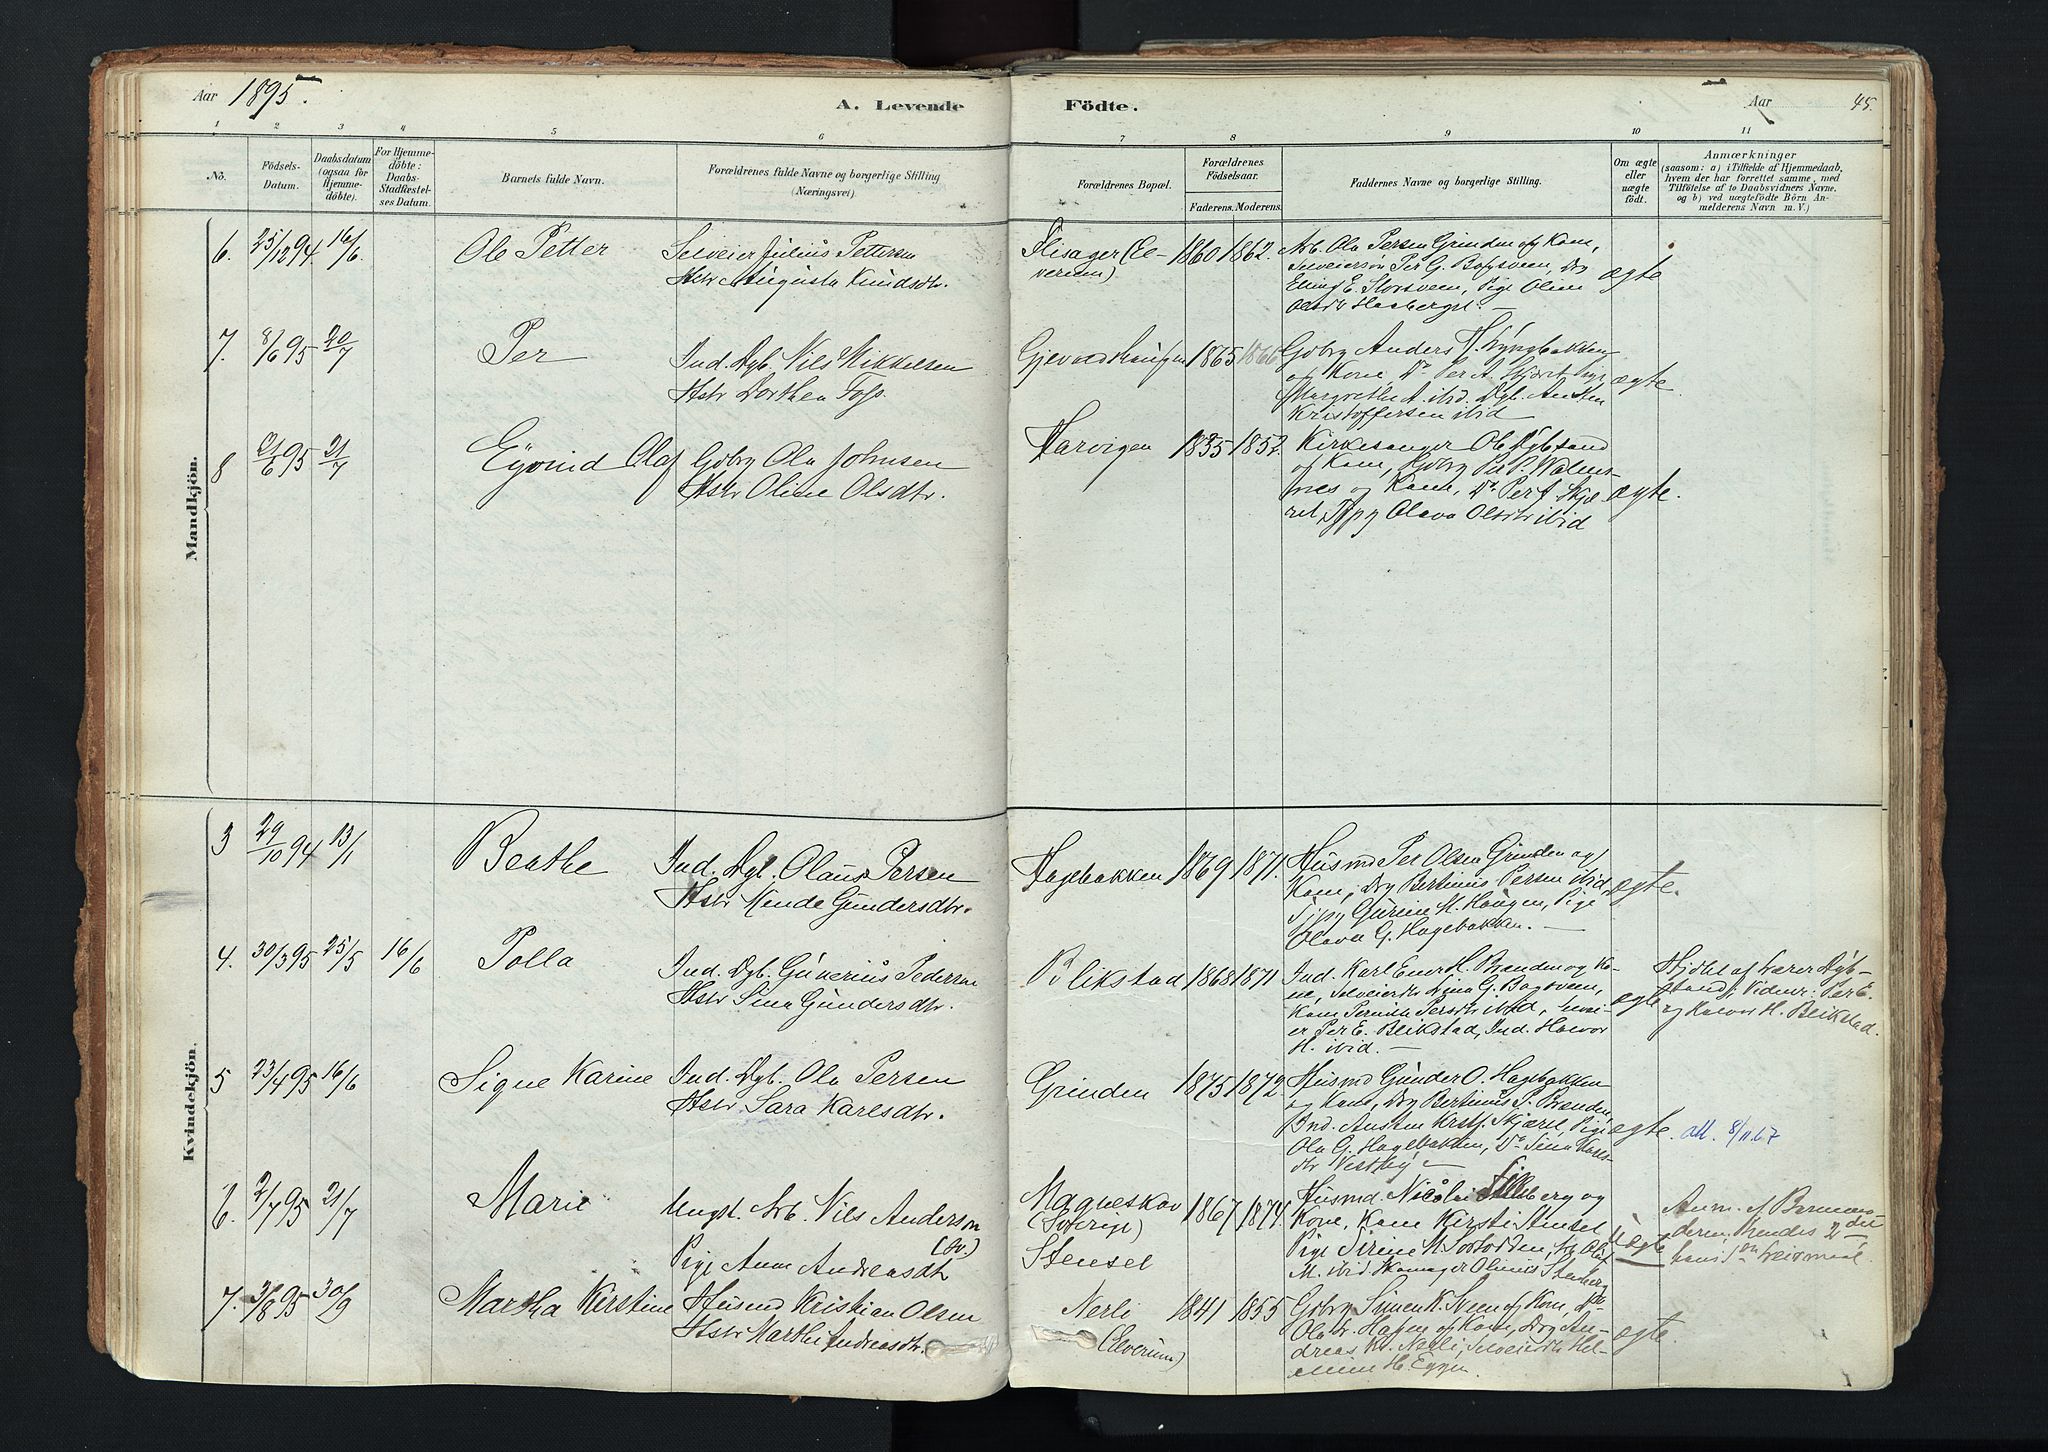 Aar 1895.
A. Levende Födte.
Aar 45.
1 2 3 4 5 6 7 8 9 10 11
No.
Födsels-
Datum.
Daabsdatum
(ogsaa for
Hjemme-
döbte).
For Hjemme-
döbte:
Daabs-
Stadfæstel-
ses Datum.
Barnets fulde Navn.
Forældrenes fulde Navne og borgerlige Stilling
(Næringsvei)
Forældrenes Bopæl.
Forældrenes
Födselsaar.
Faderens. Moderens.
Faddernes Navne og borgerlige Stilling.
Om ægte
eller
uægte
födt.
Anmærkninger
(saasom: a) i Tilfælde af Hjemmedaab,
hvem der har forrettet samme, med
Tilföielse af to Daabsvidners Navne,
og b) ved uægtefödte Börn An-
melderens Navn m. V.)
Mandkjön.
6. 25/12 94. 16/6. Ole Petter
Selveier Julius Pettersen
Hstr Augusta Knudsdtr.
Flisager (El-
verum)
1860 1862.
Arb. Ola Persen Grinden og Kone,
Selveiersøn Per G. Bagsveen,
Elling E. Storsveen, Pige Oline
ægte
7. 8/6 95 20/7 Per
Ind. Dgb. Nils Mikkelsen
Hstr Dorthea Foss.
1865 1866
Gbrg Anders H. Lyngbakken
og Kone, Do Per A. Skjæret
Margrethe A. ibid. Dgb. Austen
Kristoffersen ibid
ægte.
8 21/6 95 21/7 Eyvind Olaf
Gbrg Ola Johnsen
Hstr Oline Olsdtr.
Harvigen 1835 1852.
Kirkesanger Ole Dybsand
og Kone, Gbrg Per P.
og Kone, Do Per A. Skjæ-
ret, Olava Olsdtr ibid
ægte.
Kvindekjön.
3 29/10 94 13/1 Beathe
Ind. Dgb. Olaus Persen
Hstr Mende Gundersdtr.
Hagebakken 1869 1871.
Husmd Per Olsen Grinden og
Kone, Drg Bertinius Persen ibid,
Gurine M. Haugen, Pige
Olava G. Hagebakken. —
ægte.
4. 30/3 95 25/5 16/6 Polla
Ind. Dgb. Gunerius Pedersen
Hstr Sina Gundersdtr.
Blikstad 1868 1871
Ind. Karl Ener H. Brænden og Ko-
ne, Selveierdtr Lina G. Bagsveen,
Kone Pernille Persdtr ibid, Selvei-
er Per E. Blikstad, Ind. Halvor
H. ibid. —
ægte
Hjdbt af Lærer Dyb-
sand, Vidner: Per E.
og Halvor H. Blikstad.
5 23/4 95 16/6 Signe Karine
Ind. Dgb. Ola Persen
Hstr Sara Karlsdtr.
Grinden 1875 1872.
Husmd Gunder O. Hagebakken
og Kone, Drg Bertinius P. Brænden,
Ind. Austen Kristf. Skjæret, Pige
Ola G. Hagebakken, Do Sina Karls-
dtr Vestby —
ægte. att. 8/11 67
6. 2/7 95 21/7 Marie
Ungk. Arb. Nils Anderson
(Sv.)
Pige Anna Andreasdtr
Magneskov
(Sverige)
Stensel
1867 1874.
Husmd. Nicolai Stenberg og
Kone, Kone Kirsti Stensel
Pige Sirine M. Sorlodden, Arb. Olaf
M. ibid. Skomager Olinus Stenberg
Uægte
Anm. af Barnemo-
deren. Hendes 2det
hans 1ste Leiermaal
7. 31/8 95 30/9 Martha Kirstine
Husmd Kristian Olsen
Hstr Marthe Andreasdtr.
Nerli
(Elverum)
1841 1855
Gbrg Simen K. Sveen og Kone, Do
Ola Hagen og Kone, Drg An-
dreas Kr. Nerli, Selveierdtr Hel-
mine H. Eggen
ægte.